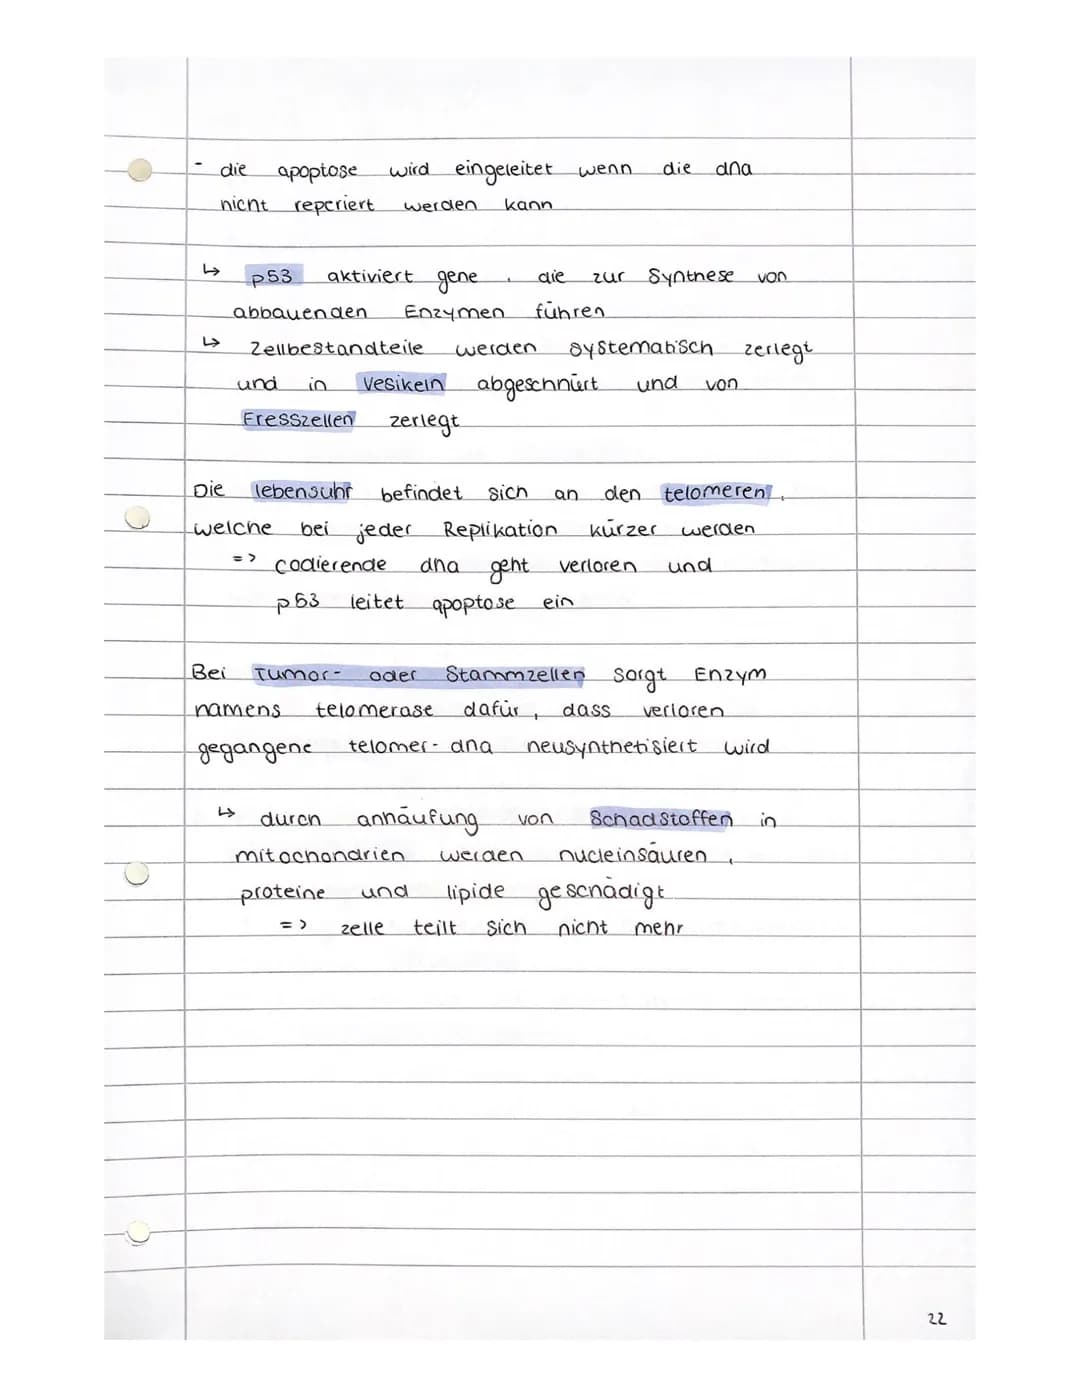 - die apoptose wird eingeleitet wenn die dna
nicht reperiert werden kann
↳ p53 aktiviert gene, die zur Synthese von
abbauenden Enzymen führen
↳ Zellbestandteile werden systematisch zerlegt
und in Vesikeln abgeschnürt und von
Fresszellen zerlegt
Die lebensuhr befindet sich an den telomeren,
welche bei jeder Replikation kürzer werden
=> codierende dna geht verloren und
p53 leitet apoptose ein
Bei Tumor- oder Stammzellen sorgt Enzym
namens telomerase dafür, dass verloren
gegangene telomer-dna neusynthetisiert wird
↳ durch anhäufung von Schadstoffen in
mitochondrien werden nucleinsäuren,
proteine und lipide geschädigt
=> zelle teilt sich nicht mehr
22